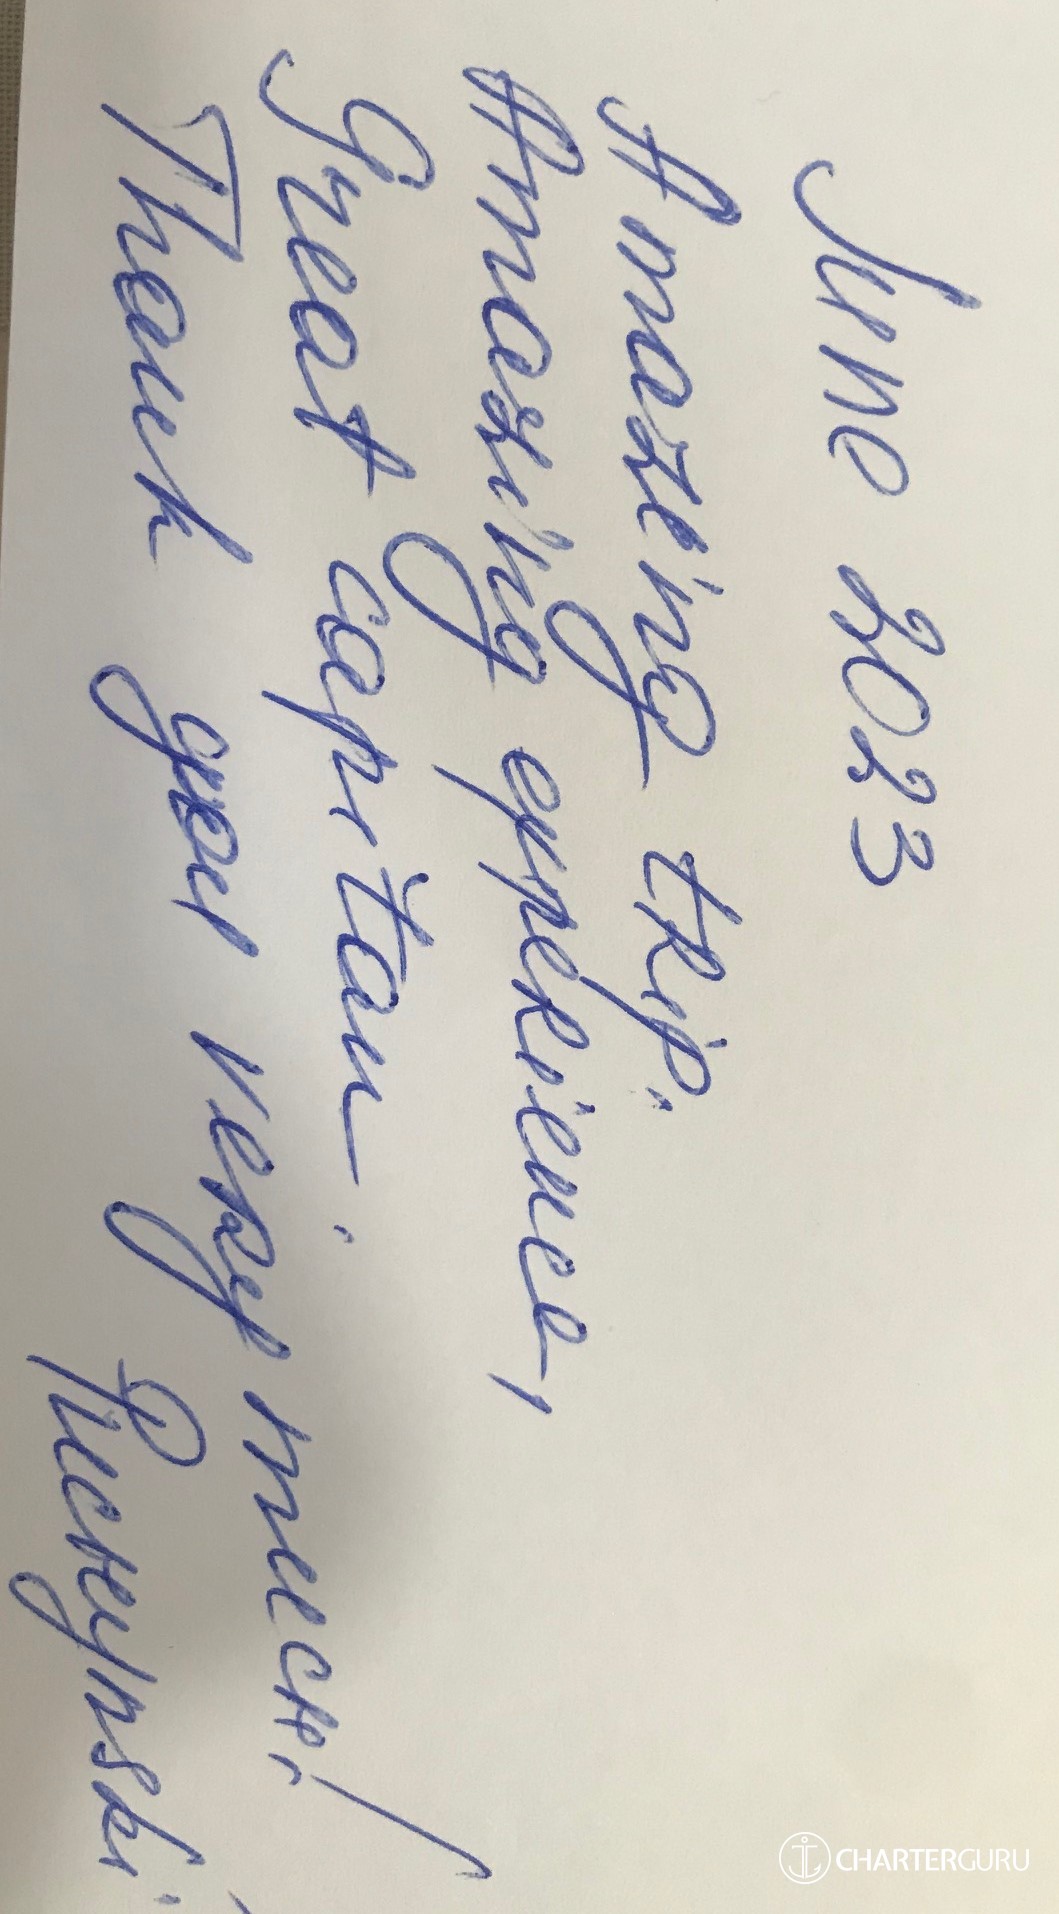 June 2023
Amazing trip.
Amazing experience,
Great capitan.
Thank you very much!
CHARTERGURU